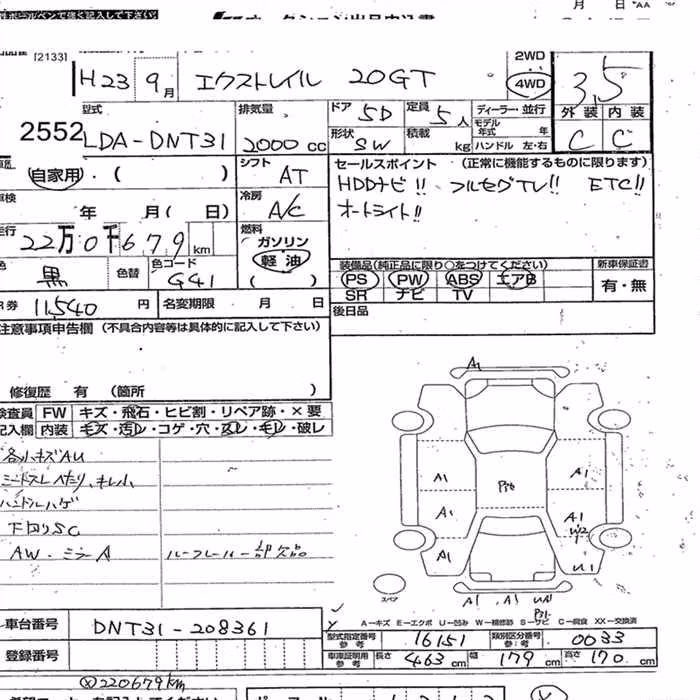 月 日 "AA
性ボールペンで強く記入して下さい
オークション出品申込書
[2133]
H23 9月 エクストレイル 20GT
2WD
4WD
3.5
型式 排気量 ドア 5D 定員 5人 ディーラー・並行 外装 内装
2552 LDA-DNT31 2000 cc 形状 SW 積載 kg モデル年式 年 C C
ハンドル 左・右
自家用・( )
シフト AT
セールスポイント (正常に機能するものに限ります)
HDDナビ!! フルセグTV!! ETC!!
オートライト!!
車検 年 月( 日)
冷房 A/C
走行 22万0千679 km
燃料 ガソリン
軽油
( )
色 黒 色替 色コード G41
装備品(純正品に限り○をつけてください) 新車保証書
PS PW ABS エアB 有・無
SR ナビ TV
R券 11,540 円 名変期限 月 日
後日品
注意事項申告欄 (不具合内容等は具体的に記入して下さい)
修復歴 有 (箇所 )
検査員 FW キズ・飛石・ヒビ割・リペア跡・×要
記入欄 内装 キズ・汚レ・コゲ・穴・スレ・キレ・破レ
各小キズAU
シートスレ へたり、キレ小
ハンドルハゲ
下回りSC
AW・ミラーA ルーフレール一部欠品
A1
A1 A1
A1 A1
W2
A1 U1
スペア
A1 A1
A-キズ E-エクボ U-凹み W-補修跡 S-サビ C-腐食 XX-交換済
車台番号 DNT31-208361
型式指定番号 参考 16151 類別区分番号 参考 0033
登録番号
車庫証明用 参考 長さ 463 cm 幅 179 cm 高さ 170 cm
※220679km